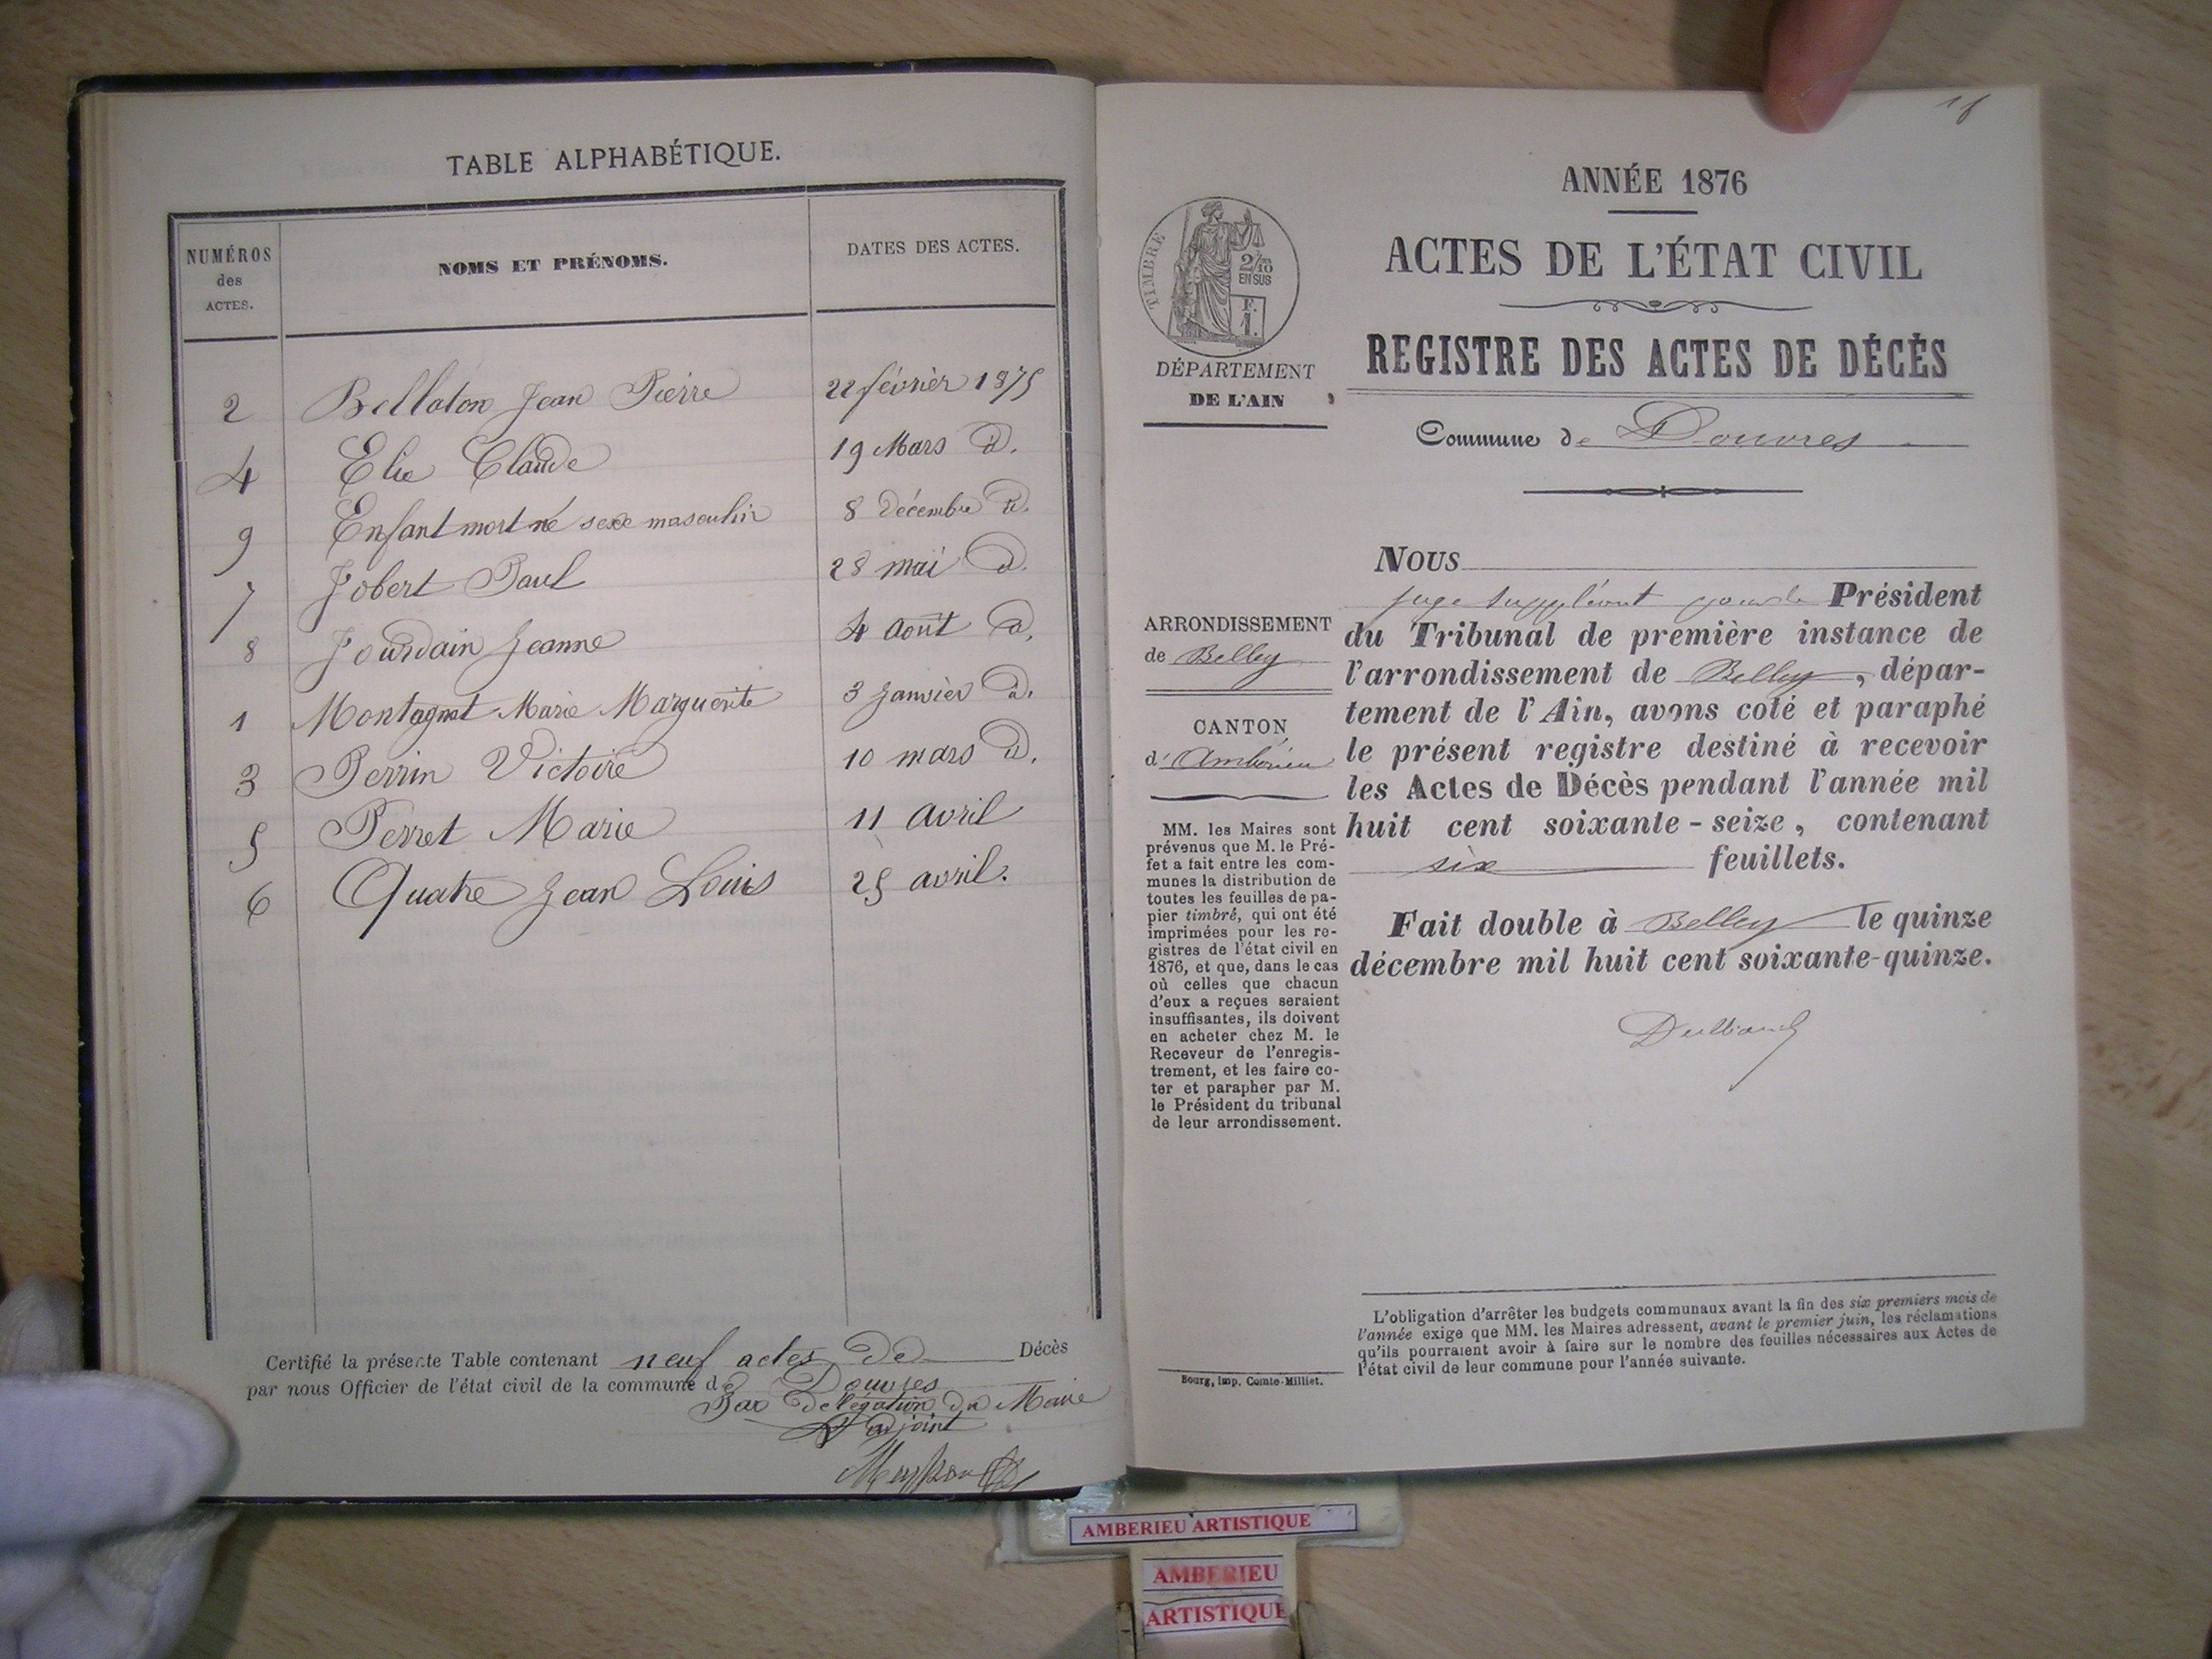 TABLE ALPHABÉTIQUE.
NUMÉROS
des
ACTES.
NOMS ET PRÉNOMS.
DATES DES ACTES.
2 Bellaton Jean Pierre 22 février 1875
4 Elie Claude 19 Mars d.
9 Enfant mort né sexe masculin 8 décembre d.
7 Jobert Paul 28 mai d.
8 Jourdain Jeanne 4 aout d.
1 Montagnat Marie Marguerite 3 Janvier d.
3 Perrin Victoire 10 mars d.
5 Perret Marie 11 avril
6 Quatre Jean Louis 25 avril.
Certifié la présente Table contenant neuf actes de Décès
par nous Officier de l'état civil de la commune de Douvres
Par délégation du Maire
L'adjoint
18
ANNÉE 1876
ACTES DE L'ÉTAT CIVIL
REGISTRE DES ACTES DE DÉCÈS
Commune de Douvres
TIMBRE
2/10
EN SUS
F.
1.
DÉPARTEMENT
DE L'AIN
ARRONDISSEMENT
de Belley
CANTON
d'Ambérieu
MM. les Maires sont
prévenus que M. le Pré-
fet a fait entre les com-
munes la distribution de
toutes les feuilles de pa-
pier timbré, qui ont été
imprimées pour les re-
gistres de l'état civil en
1876, et que, dans le cas
où celles que chacun
d'eux a reçues seraient
insuffisantes, ils doivent
en acheter chez M. le
Receveur de l'enregis-
trement, et les faire co-
ter et parapher par M.
le Président du tribunal
de leur arrondissement.
Bourg, Imp. Comte-Milliet.
NOUS
juge suppléant pour le Président
du Tribunal de première instance de
l'arrondissement de Belley, dépar-
tement de l'Ain, avons coté et paraphé
le présent registre destiné à recevoir
les Actes de Décès pendant l'année mil
huit cent soixante-seize, contenant
six feuillets.
Fait double à Belley le quinze
décembre mil huit cent soixante-quinze.
L'obligation d'arrêter les budgets communaux avant la fin des six premiers mois de
l'année exige que MM. les Maires adressent, avant le premier juin, les réclamations
qu'ils pourraient avoir à faire sur le nombre des feuilles nécessaires aux Actes de
l'état civil de leur commune pour l'année suivante.
AMBERIEU ARTISTIQUE
AMBERIEU
ARTISTIQUE